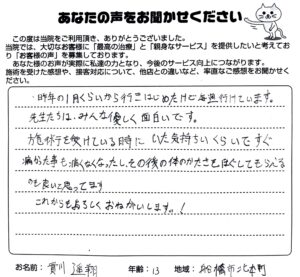 あなたの声をお聞かせください
この度は当院をご利用頂き、ありがとうございました。
当院では、大切なお客様に「最高の治療」と「親身なサービス」を提供したいと考えてお
り「お客様の声」を募集しております。
あなた様のお声が実際に私達の力となり、今後のサービス向上につながります。
施術を受けた感想や、接客対応について、他店との違いなど、率直なご感想をお聞かせくだ
さい。
昨年の1月くらいから行きはじめたけど毎週行けています。
先生たちは、みんな優しく面白いです。
施術を受けている時に いた気持ちいくらいですぐ
痛かった事も痛くなくなったし、その後の体のかたさをほぐしてもらえる
のも良いと思ってます
これからもよろしくおねがいします。!
お名前: 實川 遥翔 年齢: 13 地域: 船橋市北本町